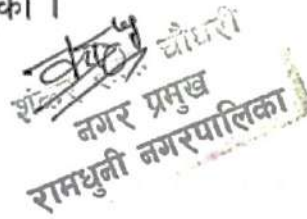 का ।
चौधरी
नगर प्रमुख
रामधुनी नगरपालिका